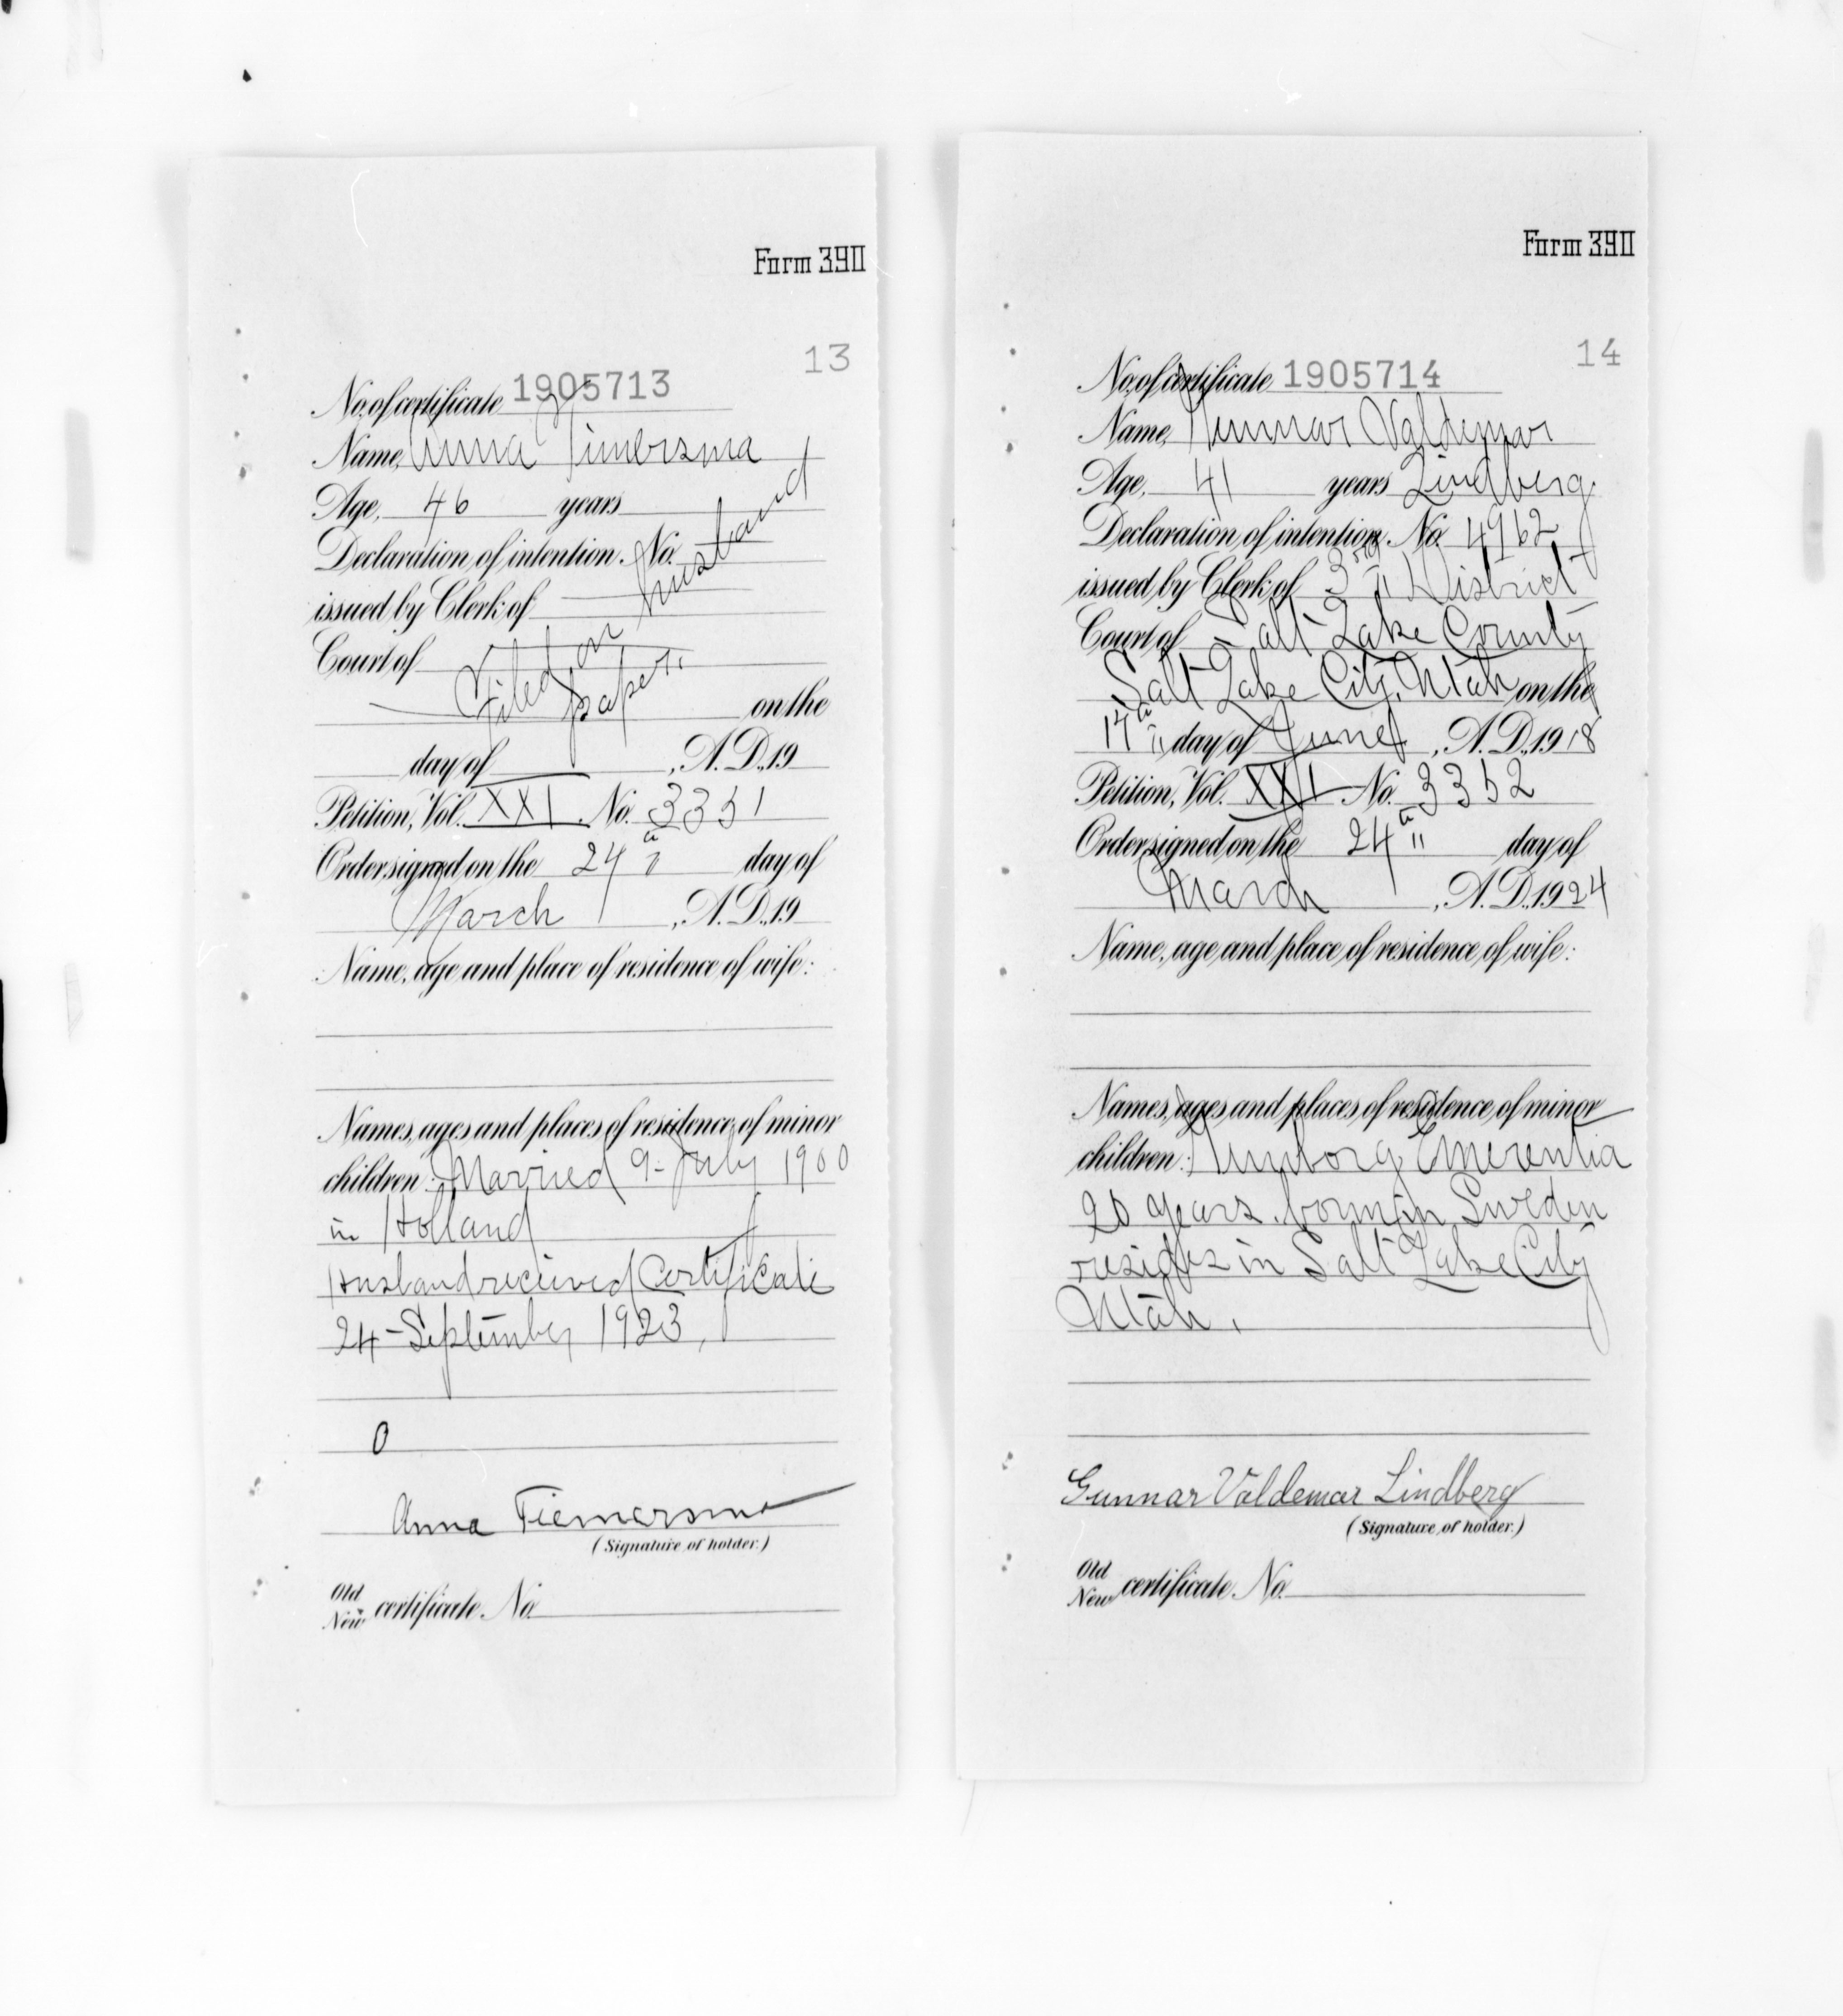 Form 390
13
No. of certificate 1905713
Name, Anna Timersma
Age, 46 years
Declaration of intention No.
issued by Clerk of
Court of
Filed on husband
papers.
on the
day of , A.D., 19
Petition, Vol. XXI No. 3351
Order signed on the 24" day of
March , A.D., 19
Name, age and place of residence of wife:
Names, ages and places of residence of minor
children: Married 9- July 1900
in Holland
Husband received Certificate
24-September 1923,
0
Anna Tiemersma
(Signature of holder.)
Old
New certificate No.
Form 390
14
No. of certificate 1905714
Name, Gunnar Valdemar
Age, 41 years Lindberg
Declaration of intention No. 4962
issued by Clerk of 3rd District
Court of Salt Lake County
Salt Lake City, Utah on the
17" day of June , A.D., 1918
Petition, Vol. XXI No. 3352
Order signed on the 24" day of
March , A.D., 1924
Name, age and place of residence of wife:
Names, ages and places of residence of minor
children: Emerentia
20 years. born in Sweden
resides in Salt Lake City
Utah.
Gunnar Valdemar Lindberg
(Signature of holder.)
Old
New certificate No.